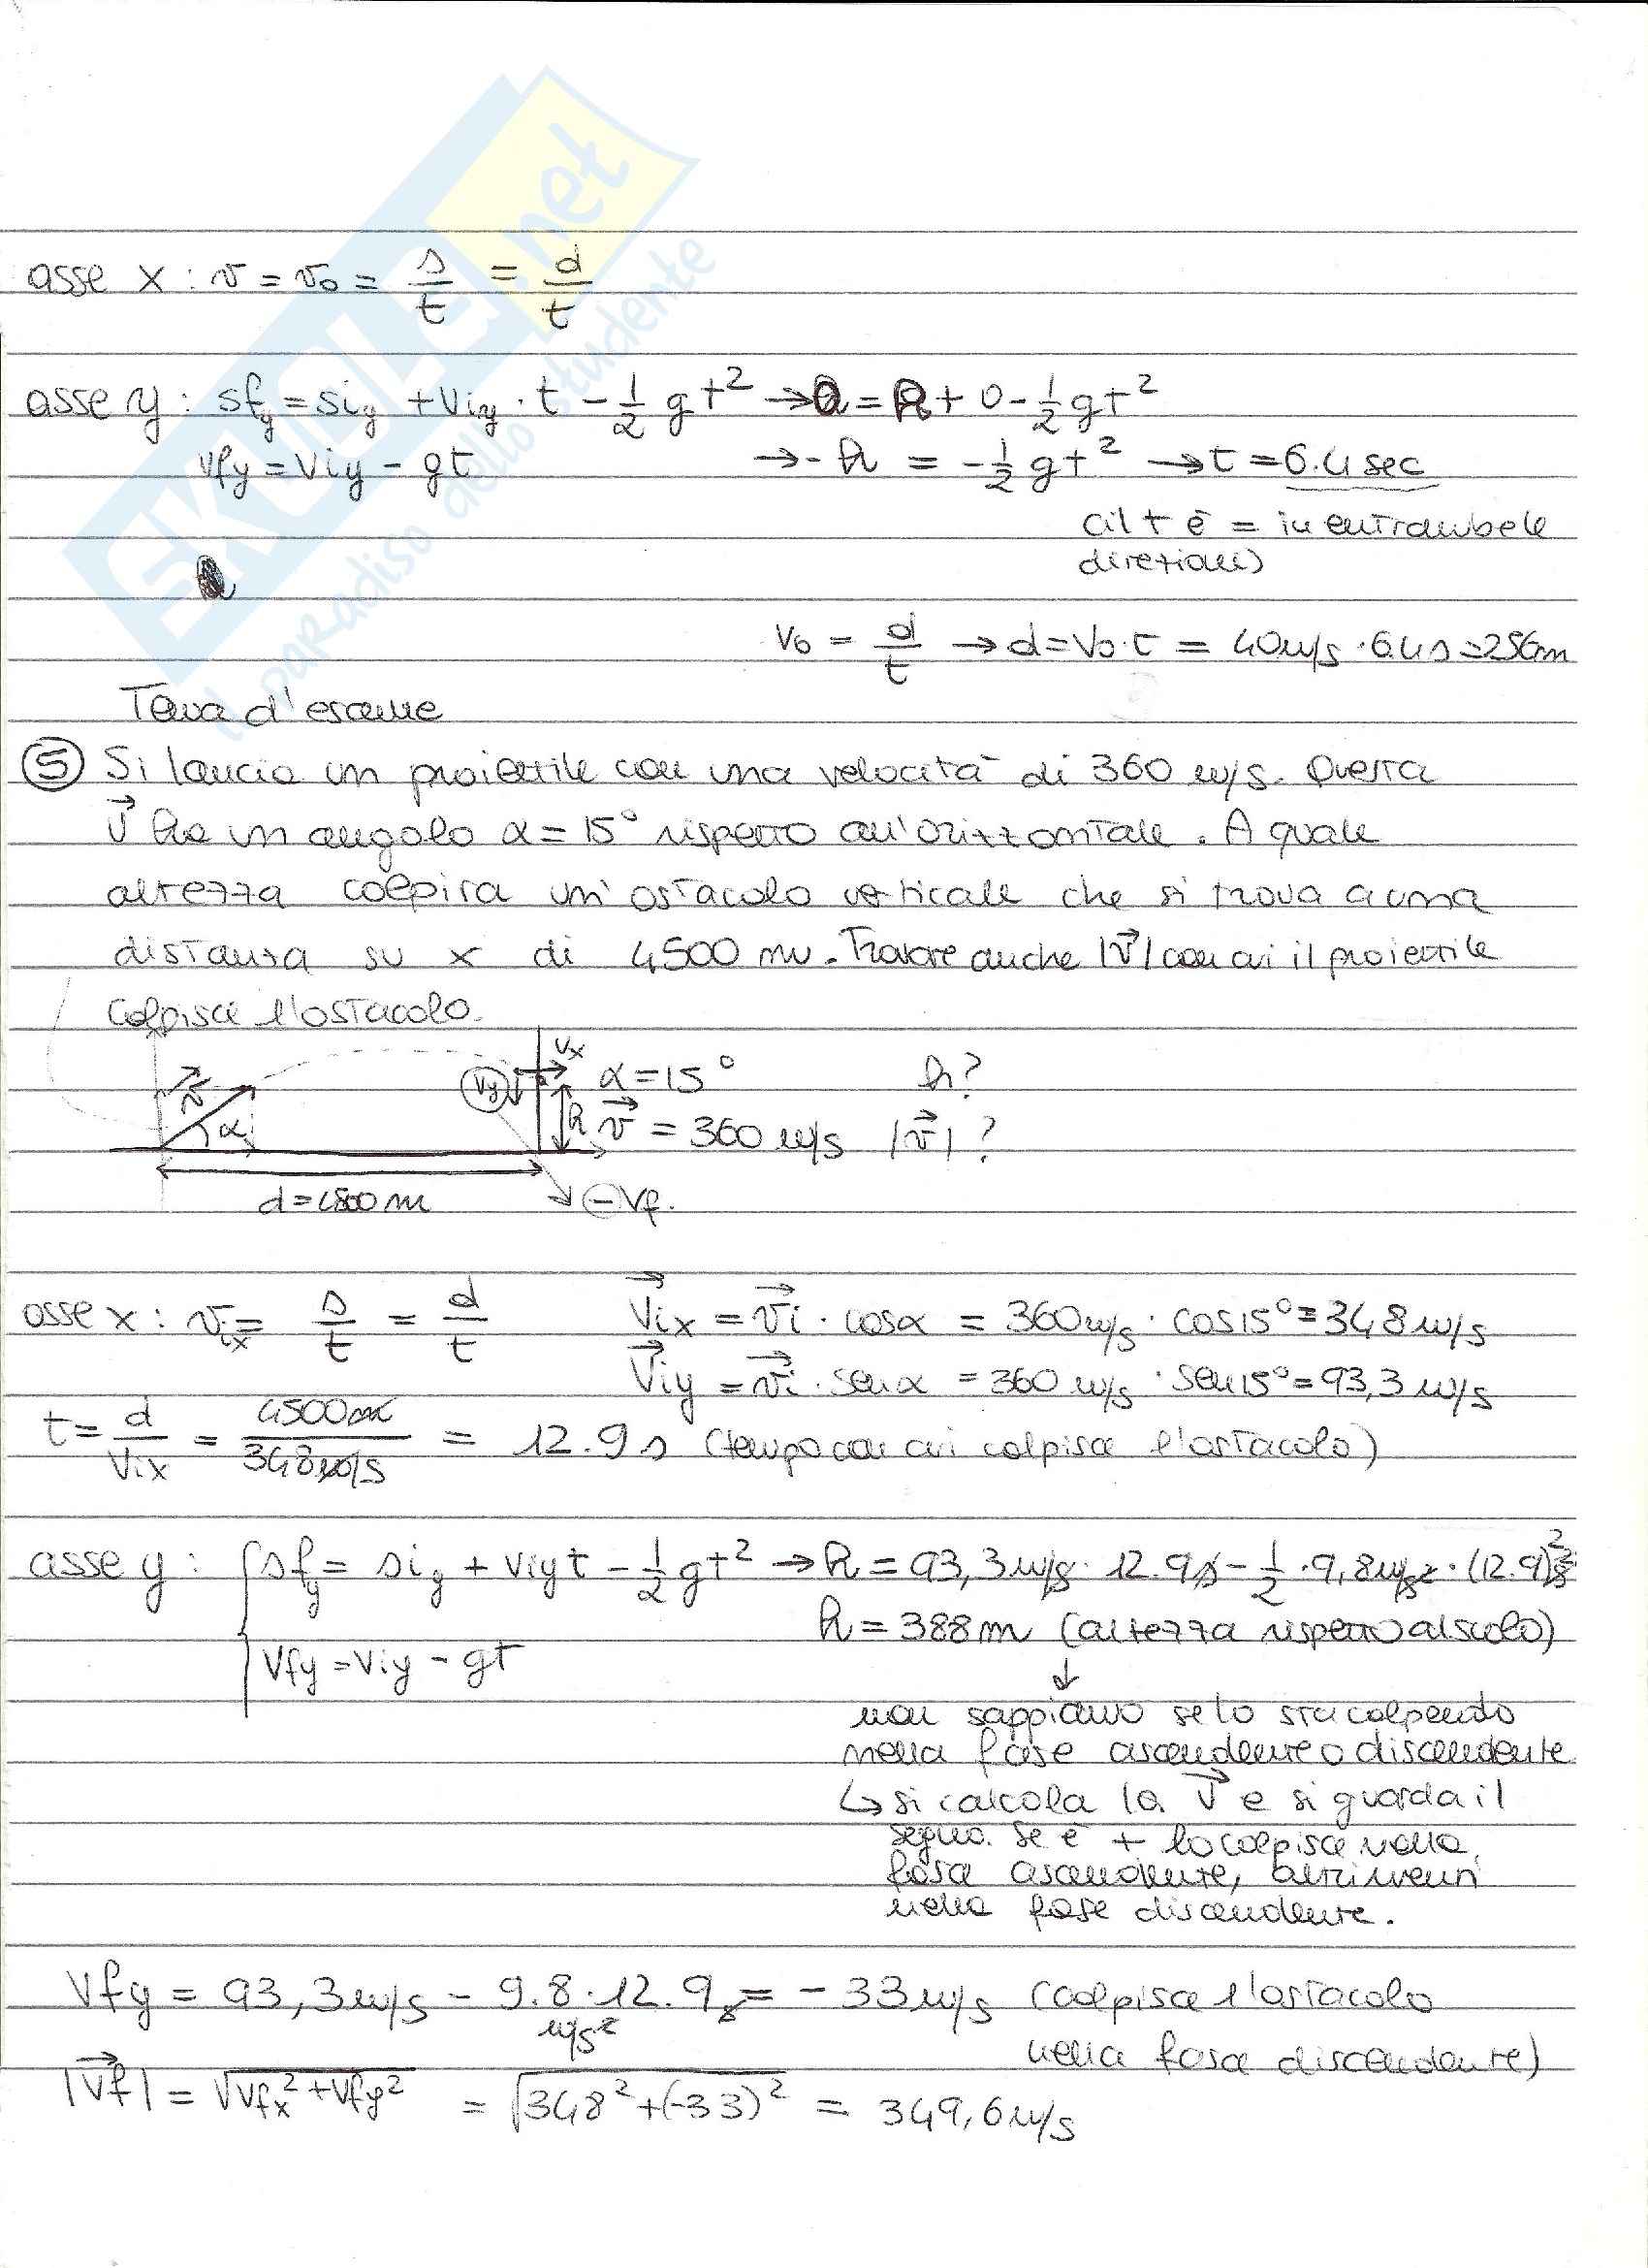 SKUOLA.net
il paradiso dello studente
asse x : v = v₀ = s/t = d/t
asse y : sfy = siy + viy · t - 1/2 gt² → 0 = h + 0 - 1/2 gt²
vfy = viy - gt → - h = - 1/2 gt² → t = 6.4 sec
(il t è = in entrambe le
direzioni)
v₀ = d/t → d = v₀ · t = 40 m/s · 6.4 s = 256 m
Tema d'esame
⑤ Si lancia un proiettile con una velocità di 360 m/s. Questa
v⃗ ha un angolo α = 15° rispetto all'orizzontale. A quale
altezza colpirà un'ostacolo verticale che si trova a una
distanza su x di 4500 m. Trovare anche |v⃗| con cui il proiettile
colpisce l'ostacolo.
v⃗ α vy vx h α = 15° h?
v⃗ = 360 m/s |v⃗| ?
d = 4500 m - vf.
asse x : vix = s/t = d/t v⃗ix = v⃗i · cosα = 360 m/s · cos15° = 348 m/s
v⃗iy = v⃗i · senα = 360 m/s · sen15° = 93,3 m/s
t = d/vix = 4500m/348m/s = 12.9 s (tempo con cui colpisce l'ostacolo)
asse y : { sfy = siy + viyt - 1/2 gt² → h = 93,3 m/s · 12.9 s - 1/2 · 9,8 m/s² · (12.9)² s²
h = 388 m (altezza rispetto al suolo)
vfy = viy - gt ↓
non sappiamo se lo sta colpendo
nella fase ascendente o discendente
↳ si calcola la v⃗ e si guarda il
segno. Se è + lo colpisce nella
fase ascendente, altrimenti
nella fase discendente.
vfy = 93,3 m/s - 9.8 m/s² · 12.9 s = - 33 m/s (colpisce l'ostacolo
nella fase discendente)
|v⃗f| = √vfx² + vfy² = √348² + (-33)² = 349,6 m/s